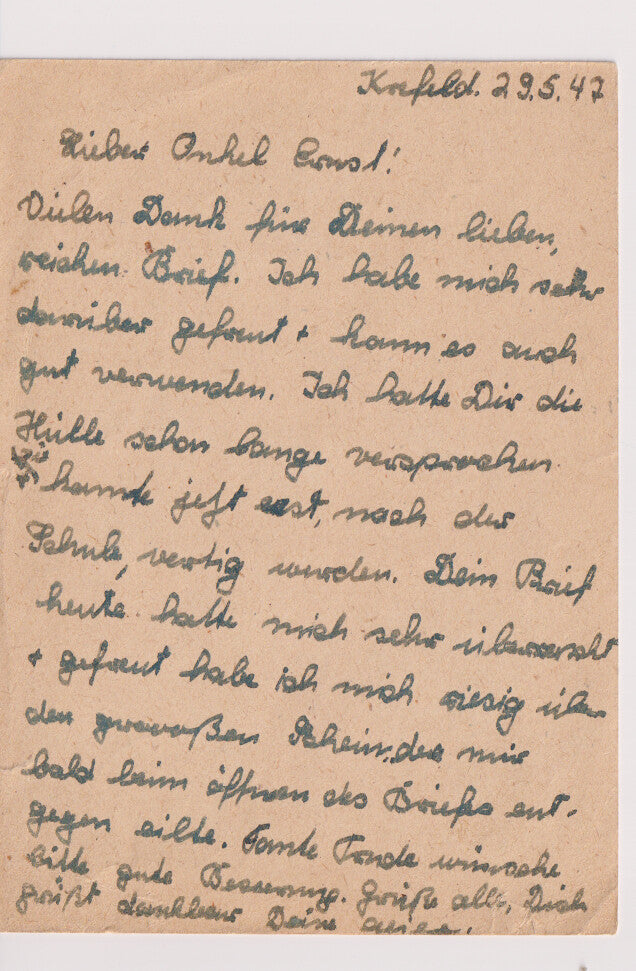 Krefeld. 29.5.47
Lieber Onkel Ernst!
Vielen Dank für Deinen lieben,
reichen Brief. Ich habe mich sehr
darüber gefreut + kann es auch
gut verwenden. Ich hatte Dir die
Hülle schon lange versprochen
+ konnte jetzt erst, nach der
Schule, vertig werden. Dein Brief
heute hatte mich sehr überrascht
+ gefreut habe ich mich riesig über
den großen Schein, der mir
bald beim öffnen des Briefes ent-
gegen eilte. Tante Trude wünsche
bitte gute Besserung. Grüße alle, Dich
grüßt dankbar Deine